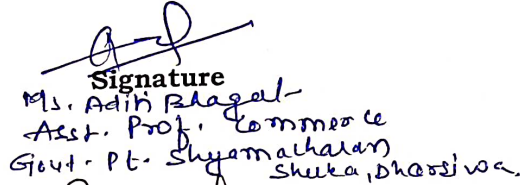 Signature
Ms. Aditi Bhagat
Asst. Prof. Commerce
Govt. Pt. Shyamacharan
Shukla, Dharsiwa.